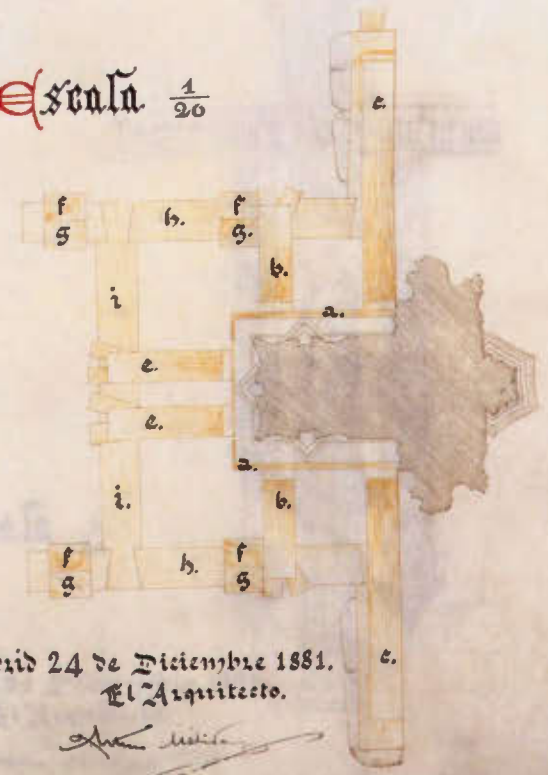 Escala 1/20
c.
f h. f
g g.
b.
i a.
e.
e.
a.
i. b.
f h. f
g g
c.
rid 24 de Diciembre 1881.
El Arquitecto.